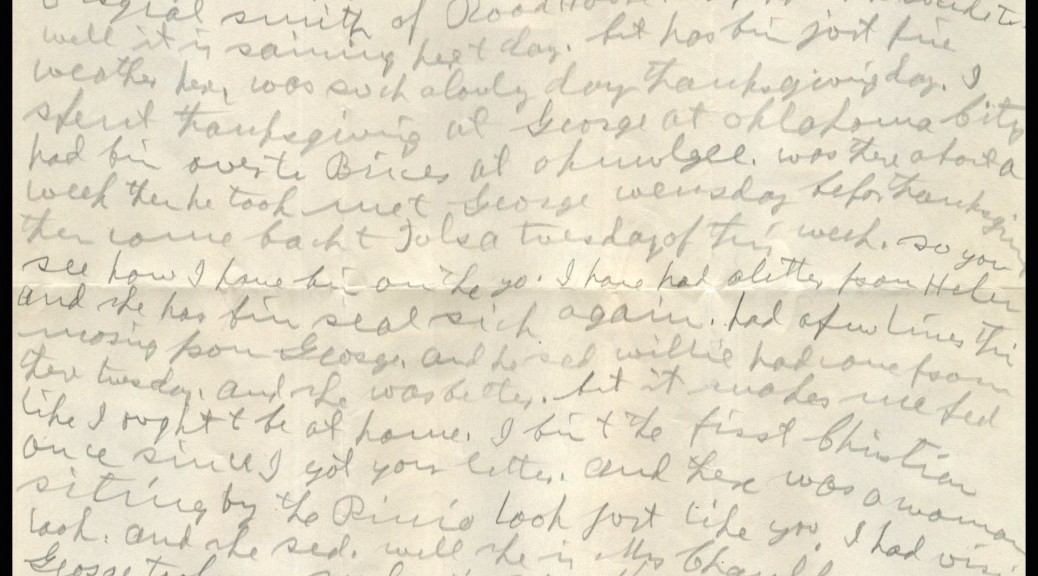 smith of
well it is raining here to day. but has bin just fine
weather here, was such a lovly day thanksgiving day. I
spent thanksgiving at George at oklahoma City
had bin over to Bires at okmulgee. was there about a
week then he took me t George wensday befor thanksgiving
then come back t Tulsa tuesday of this week. so you
see how I have bin on the go. I have had a letter from Helen
and she has bin real sick again. had a few lines this
morning from George. and he sed willie had come from
ther tuesday. and she was better. but it makes me feel
like I ought t be at home. I bin t the first Christian
once since I got your letter. and there was a woman
siting by the Piano look just like you. I had
look. and she sed. well she is Mrs
George